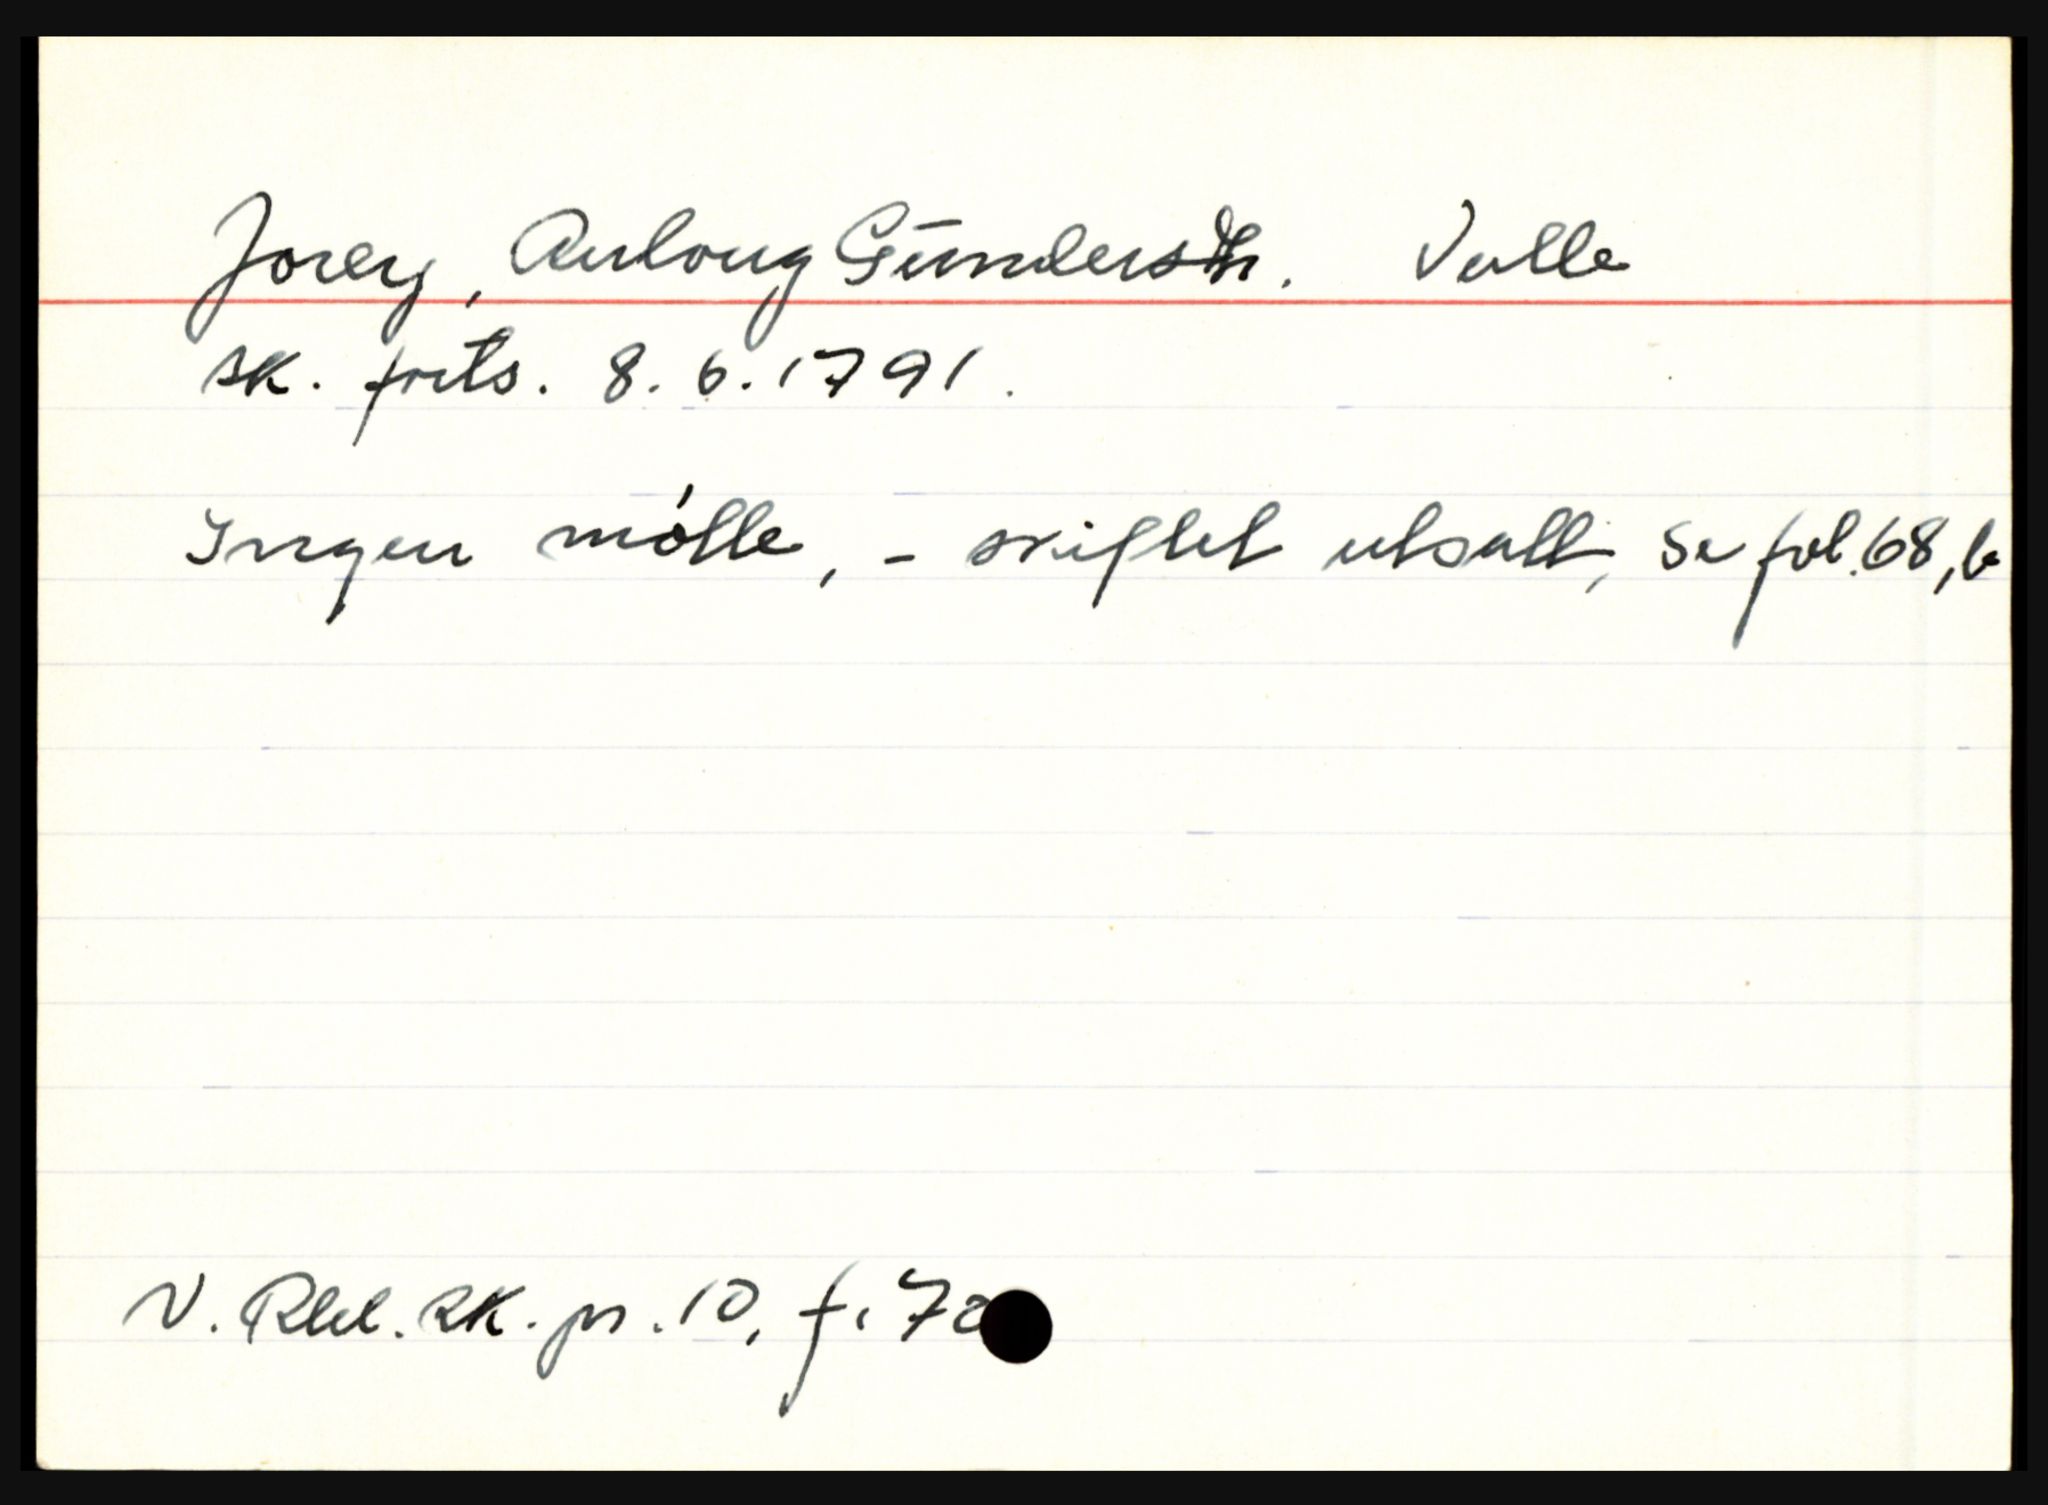 Jorey, Anlaug Gundersdh. Valle
sk. forts. 8.6.1791.
Ingen møtte, - skiftet utsatt, se fol. 68, b
N. Rbl. sk. pr. 10, f. 70